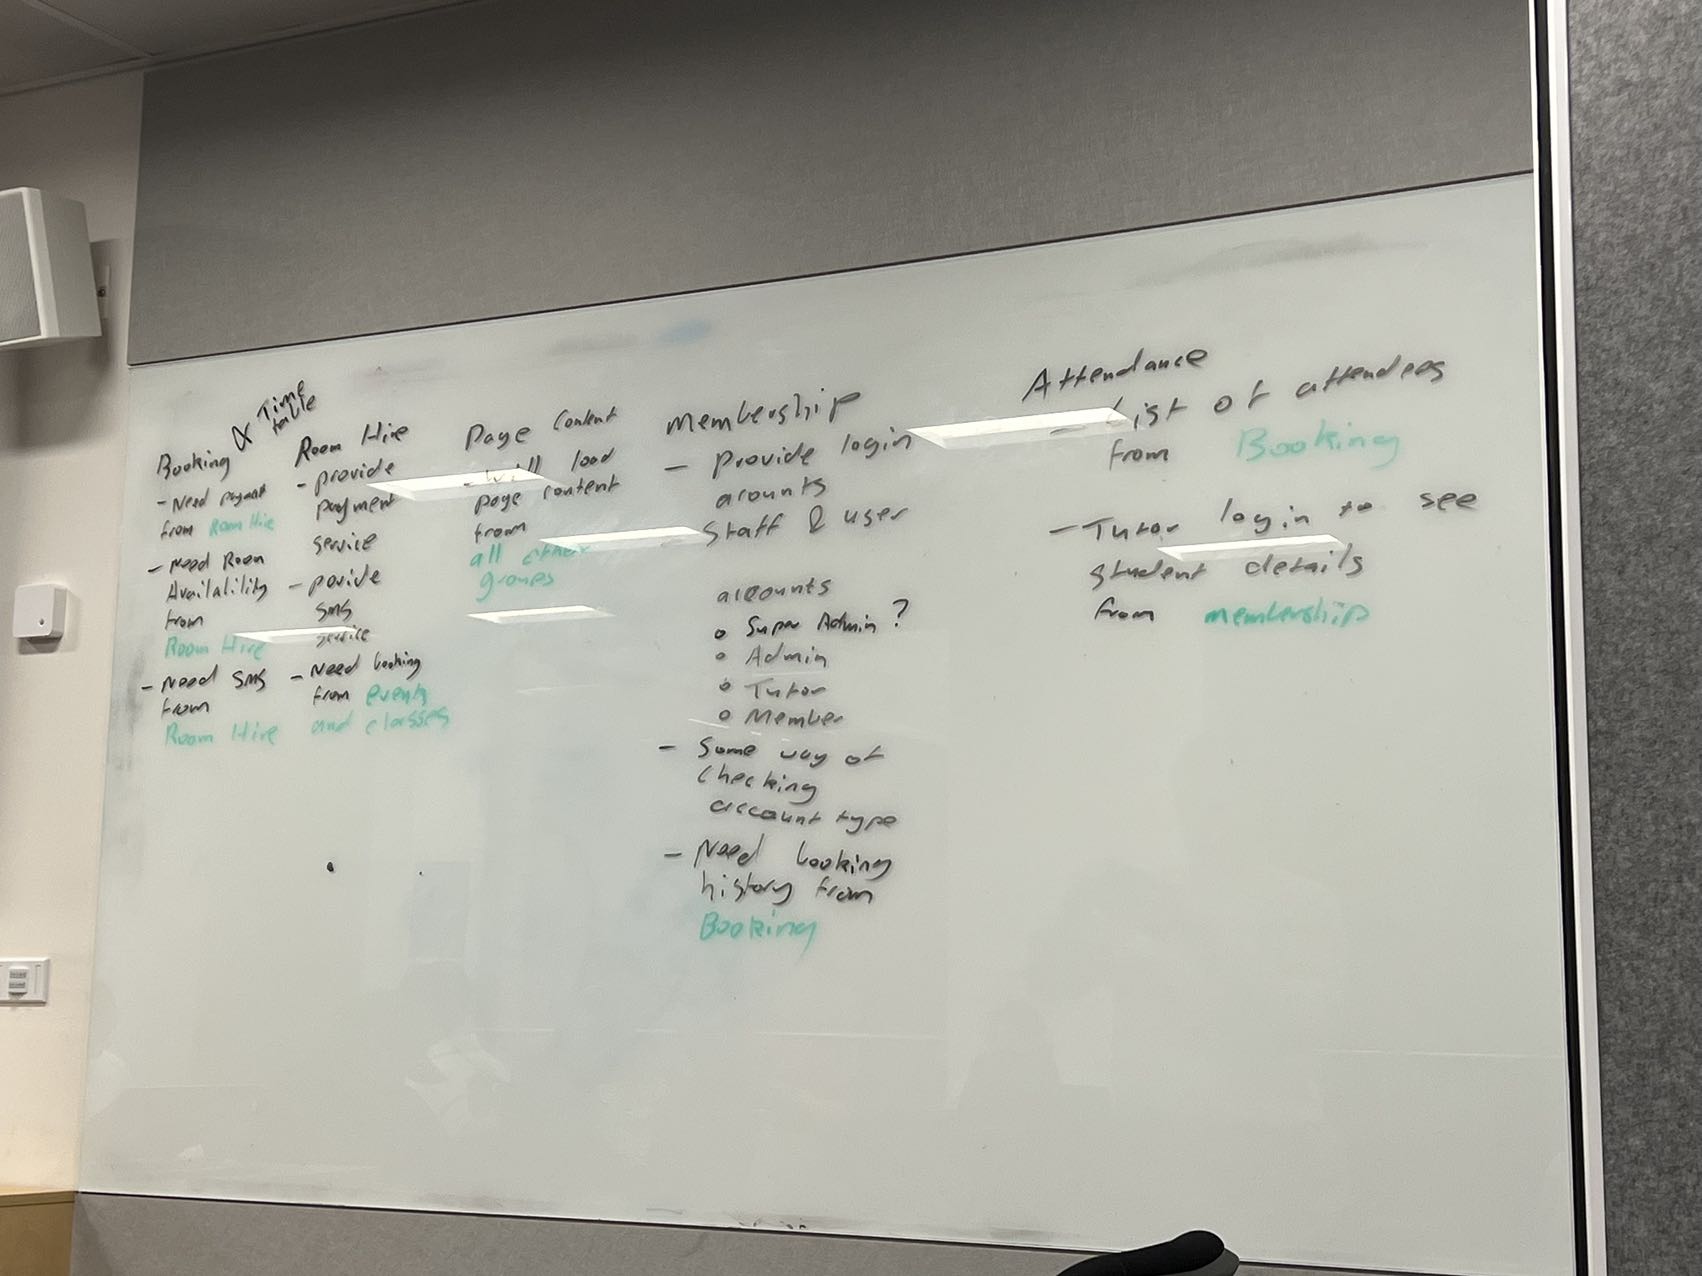 Booking & Time
table
- Need payment
from Room Hire
- Need Room
Availability
from
Room Hire
- Need SMS
from
Room Hire
Room Hire
- provide
payment
service
- povide
SMS
service
- Need booking
from events
and classes
Page Content
- will load
page content
from
all other
groups
Membership
- Provide login
acounts
Staff & user
accounts
o Super Admin ?
o Admin
o Tutor
o Member
- Some way of
checking
account type
- Need booking
history from
Booking
Attendance
- List of attendees
from Booking
- Tutor login to see
student details
from membership